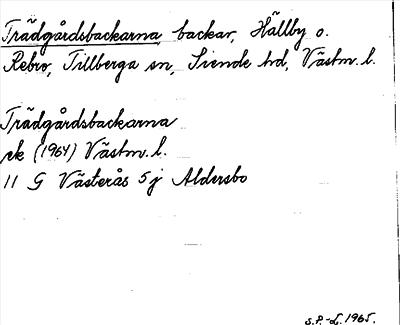 Trädgårdsbackarna backar, Hällby o.
Rebro, Tillberga sn, Siende hd, Västm. l.
Trädgårdsbackarna
ek (1964) Västm. l.
11 G Västerås 5 j Aldersbo
S.P.-L. 1965.